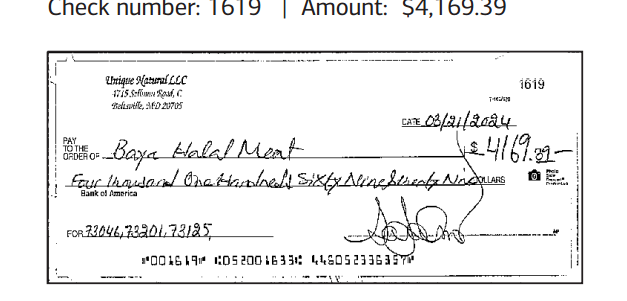 Check number: 1619 | Amount: $4,169.39
Unique Natural LLC
4715 Sellman Road, C
Beltsville, MD 20705
1619
DATE 03/21/2024
PAY TO THE ORDER OF Baya Halal Meat $ 4169.39
Four thousand One Hundred Sixty Nine DOLLARS
Bank of America
FOR 73046,73201,73125,